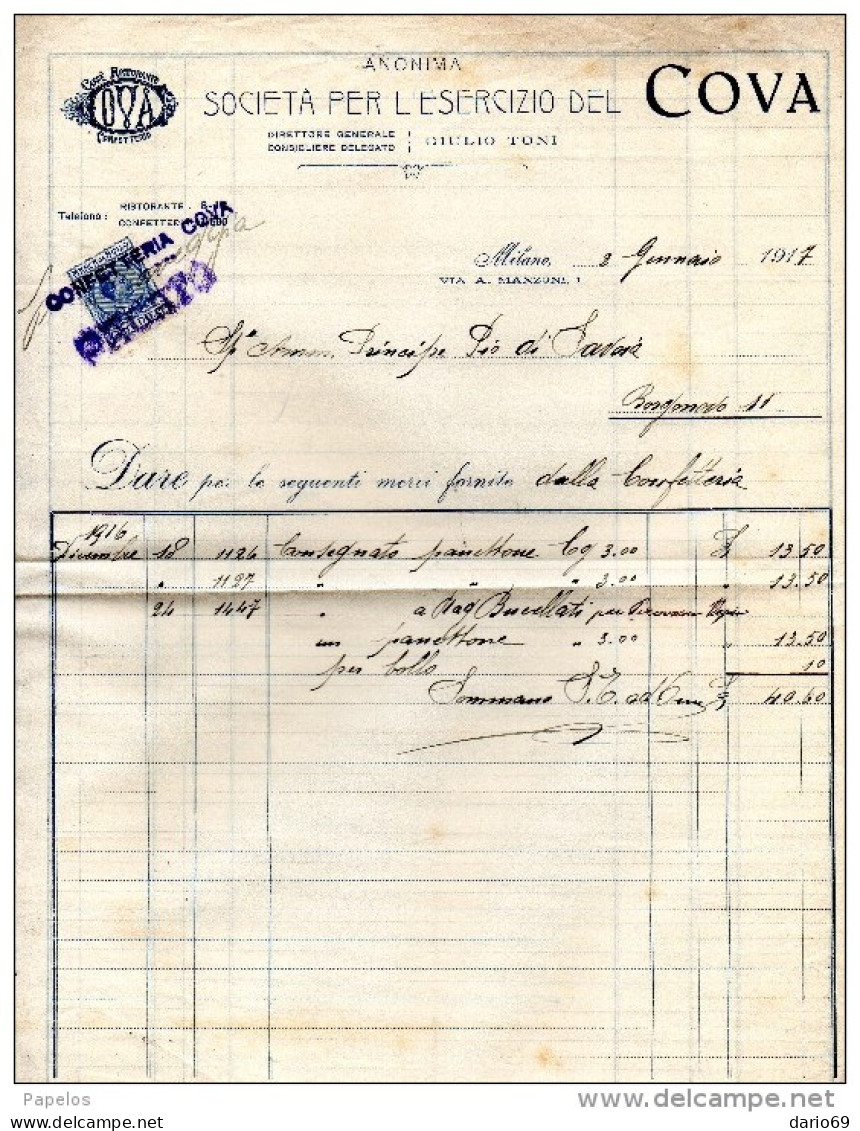 CAFFÈ RISTORANTE
COVA
CONFETTERIA
ANONIMA
SOCIETÀ PER L'ESERCIZIO DEL COVA
DIRETTORE GENERALE
CONSIGLIERE DELEGATO
GIULIO TONI
Telefono: RISTORANTE
CONFETTERIA
CONFETTERIA COVA
PAGATO
Milano, 2 Gennaio 1917
VIA A. MANZONI, 1
Sp. Amm. Principe Pio di Savoia
Borgonovo 11
Dare per le seguenti merci fornite dalla Confetteria
1916
Dicembre 18 1126 Consegnato panettone Cg 3.00 £ 13.50
" 1127 " " " 3.00 " 13.50
24 1447 " a Rag Bucellati per
un panettone " 3.00 " 13.50
per bollo 10
Sommano S.E. ed O. £ 40.60
Papelos
delcampe.net
dario69